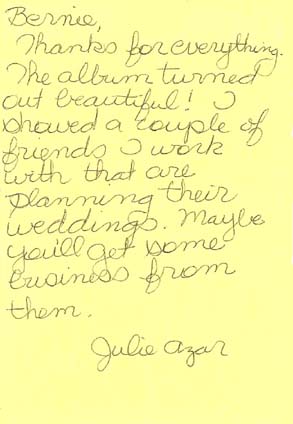 Bernie,
Thanks for everything.
The album turned
out beautiful! I
showed a couple of
friends I work
with that are
planning their
weddings. Maybe
you'll get some
business from
them.
Julie Azar